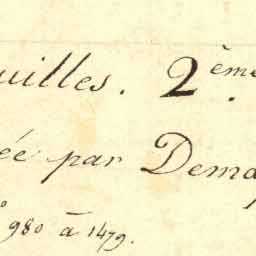 uilles. 2ème
ée par Dema
o 980 à 1479.